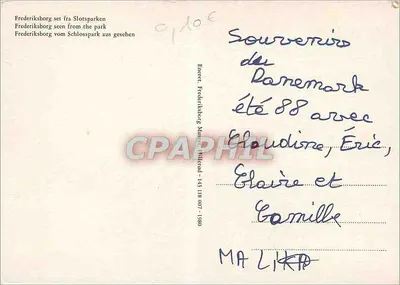 Frederiksborg set fra Slotsparken
Frederiksborg seen from the park
Frederiksborg vom Schlosspark aus gesehen
0,10€
Eneret. Frederiksborg Hillerød - 145 118 007 - 1980
CPAPHIL
Souvenirs
du
Danemark
été 88 avec
Claudine, Éric,
Claire et
Camille
MALIKA